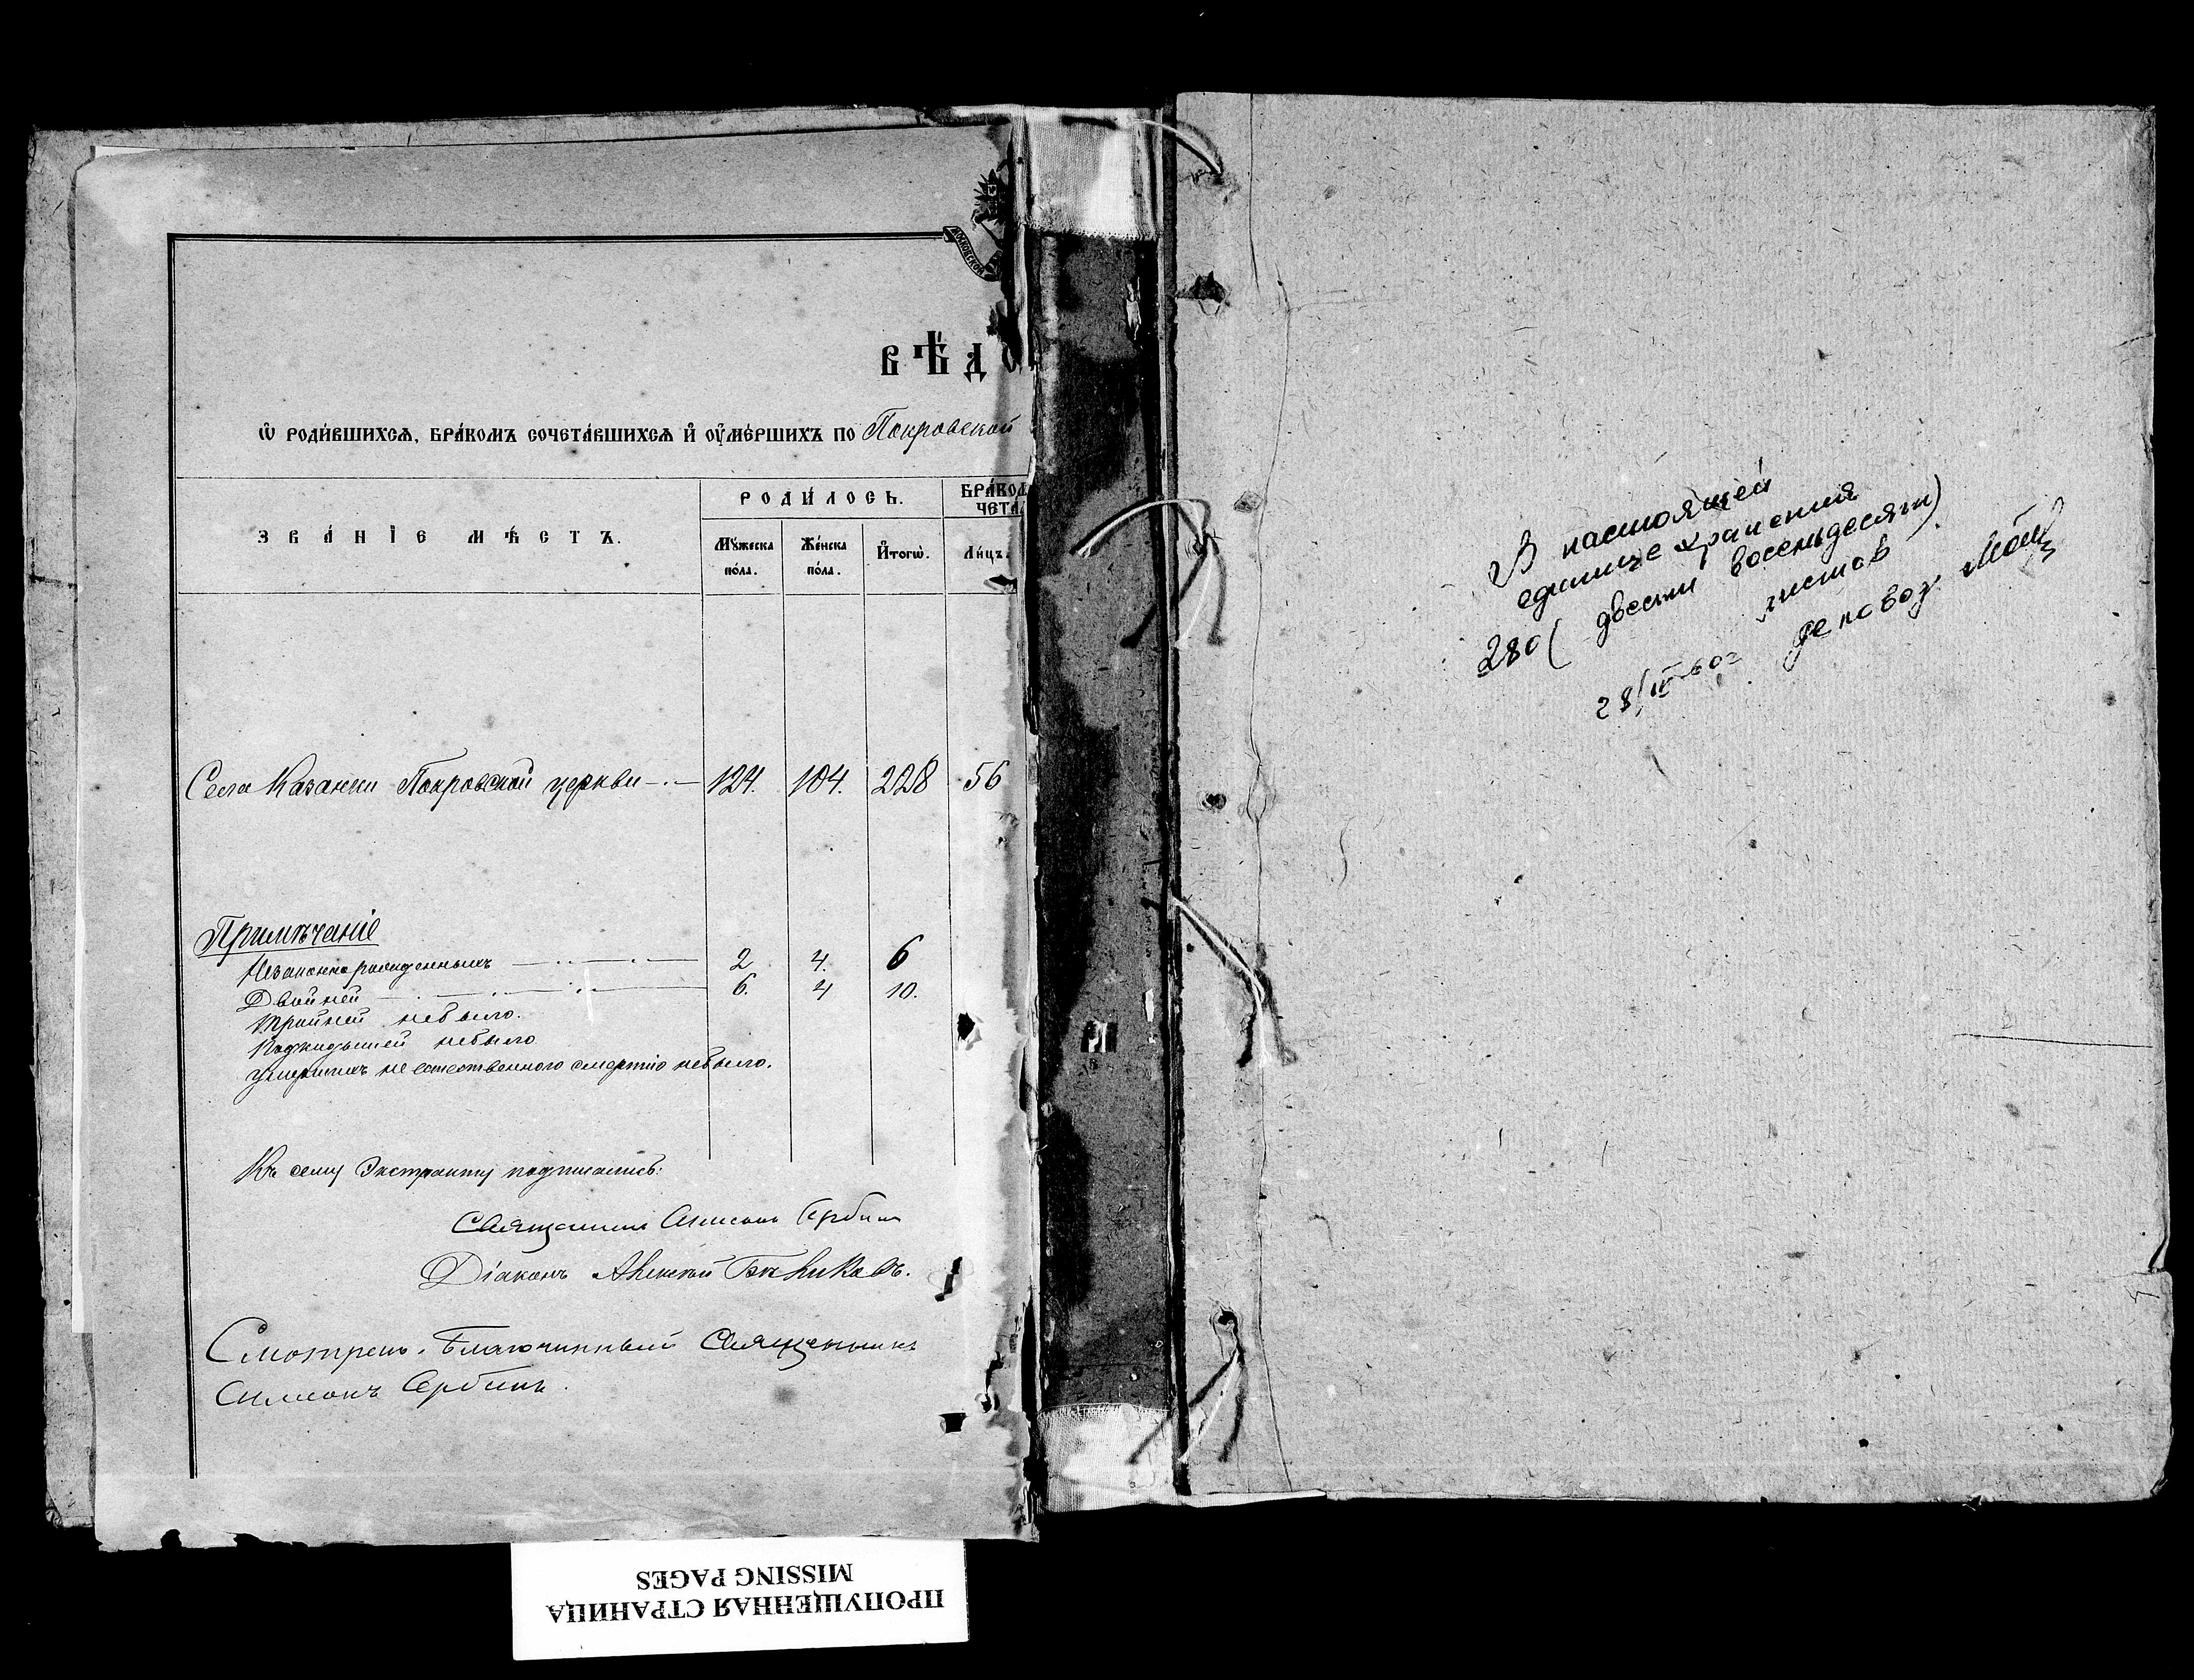 МОСКОВСКОЙ
ВѢДО
Ѡ РОДИ́ВШИХСѦ, БРА́КОМЪ СОЧЕТА́ВШИХСѦ И҆ ОУ҆МЕ́РШИХЪ ПО Покровской
ЗВА́НІЕ МѢ́СТЪ.
РОДИ́ЛОСЬ.
БРА́КОМ
ЧЕТА
Мꙋ́жеска
по́ла.
Же́нска
по́ла.
И҆тогѡ̀.
Ли́цъ.
Села Казанки Покровской церкви 124. 104. 228 56
Примѣчаніе
Незаконнорожденныхъ 2 4. 6
Двойней 6. 4 10.
Тройней небыло.
Подкидышей небыло
умершихъ неестественного смертію небыло.
Къ сему Экстракту подписались:
Священникъ Симеонъ Сербинъ
Діаконъ Алексѣй
Смотрѣлъ. Благочинный Священникъ
Симеонъ Сербинъ.
В настоящей
единице хранения
280 (двести восемьдесят)
листов.
28/IV-60г делопоз.
ПРОПУЩЕННАЯ СТРАНИЦА
MISSING PAGES